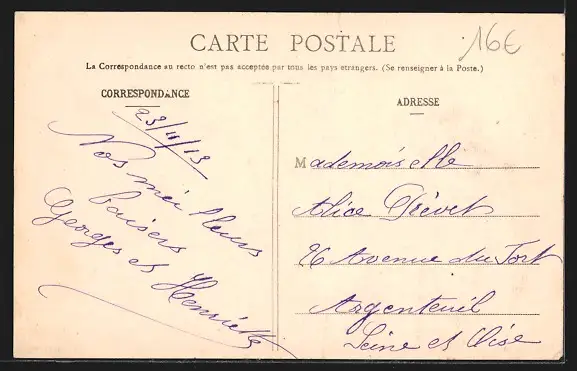 CARTE POSTALE
16€
La Correspondance au recto n'est pas acceptée par tous les pays etrangers. (Se renseigner à la Poste.)
CORRESPONDANCE
23/4/13
Nos meilleurs
baisers
Georges et Henriette
ADRESSE
Mademoiselle
Alice Prévet
26 Avenue du Fort
Argenteuil
Seine et Oise